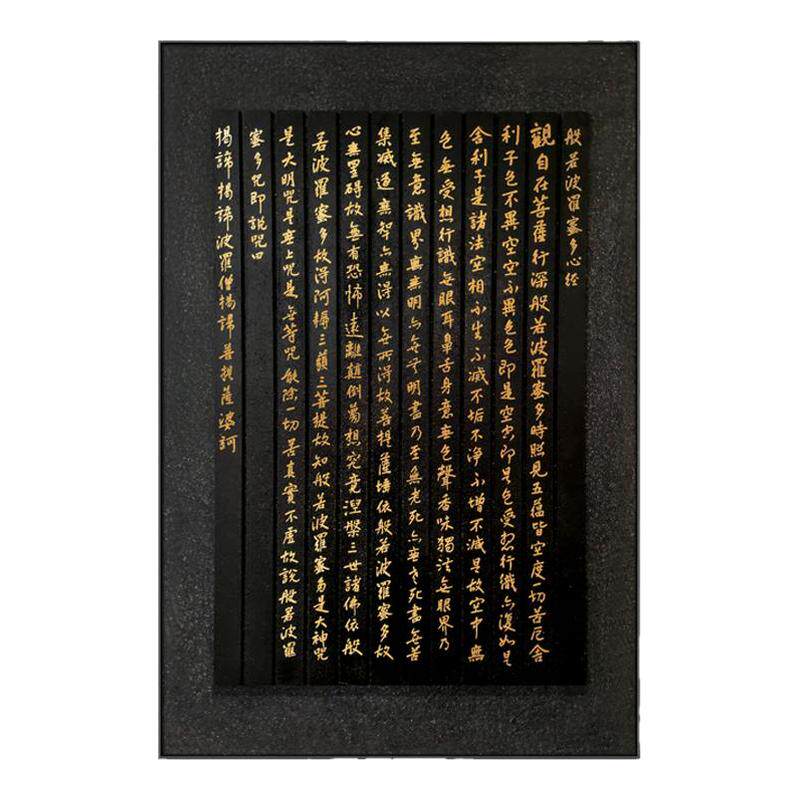 般若波羅蜜多心經
觀自在菩薩行深般若波羅蜜多時照見五蘊皆空度一切苦厄舍
利子色不異空空不異色色即是空空即是色受想行識亦復如是
舍利子是諸法空相不生不滅不垢不淨不增不減是故空中無
色無受想行識無眼耳鼻舌身意無色聲香味觸法無眼界乃
至無意識界無無明亦無無明盡乃至無老死亦無老死盡無苦
集滅道無智亦無得以無所得故菩提薩埵依般若波羅蜜多故
心無罣礙故無有恐怖遠離顛倒夢想究竟涅槃三世諸佛依般
若波羅蜜多故得阿耨三藐三菩提故知般若波羅蜜多是大神咒
是大明咒是無上咒是無等咒能除一切苦真實不虛故說般若波羅
蜜多咒即說咒曰
揭諦揭諦波羅僧揭諦菩提薩婆訶